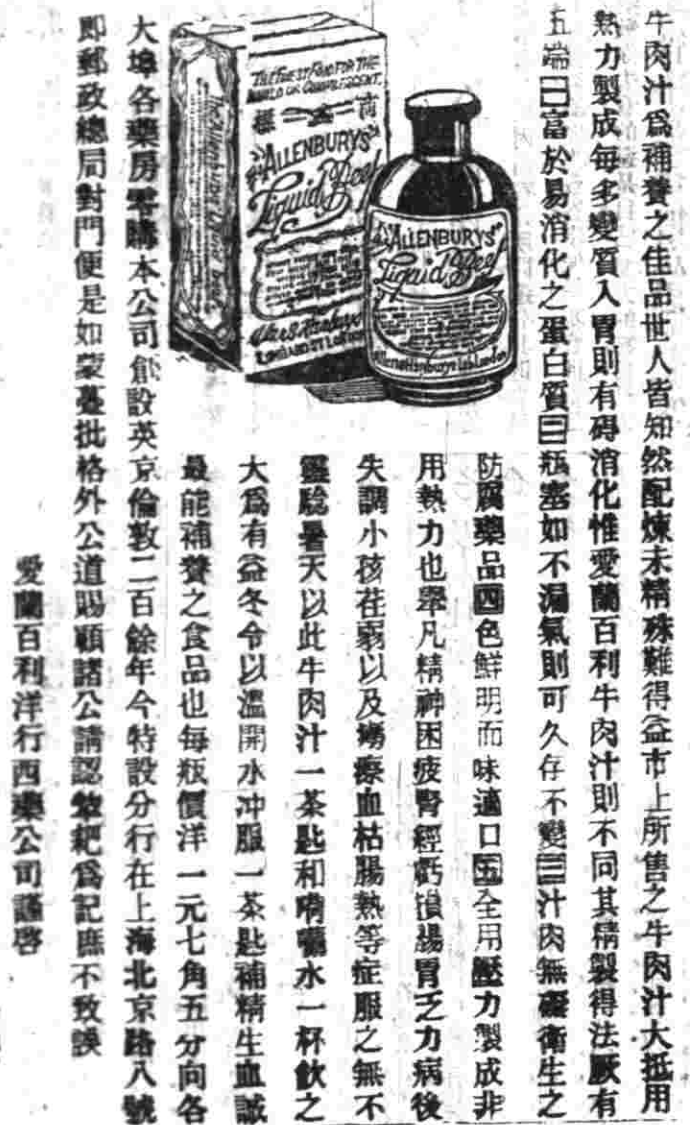 牛肉汁爲補養之佳品世人皆知然配煉未精殊難得益市上所售之牛肉汁大抵用
熱力製成每多變質入胃則有碍消化惟愛蘭百利牛肉汁則不同其精製得法厥有
五端㊀富於易消化之蛋白質㊁瓶塞如不漏氣則可久存不變㊂汁肉無礙衛生之
防腐藥品㊃色鮮明而味適口㊄全用壓力製成非
用熱力也舉凡精神困疲腎經虧損腸胃乏力病後
失調小孩荏弱以及癆瘵血枯腸熱等症服之無不
靈驗暑天以此牛肉汁一茶匙和嗬囒水一杯飲之
大爲有益冬令以溫開水冲服一茶匙補精生血誠
最能補養之食品也每瓶價洋一元七角五分向各
大埠各藥房零購本公司創設英京倫敦二百餘年今特設分行在上海北京路八號
即郵政總局對門便是如蒙躉批格外公道賜顧諸公請認犂耙爲記庶不致誤
愛蘭百利洋行西藥公司謹啓
THE FINEST FOOD FOR THE
INVALID OR CONVALESCENT.
商標
"ALLENBURYS"
Liquid Beef
Allen & Hanburys
LOMBARD ST LONDON
The Allenburys Liquid Beef
"ALLENBURYS"
Liquid Beef
Allen & Hanburys Ltd. London